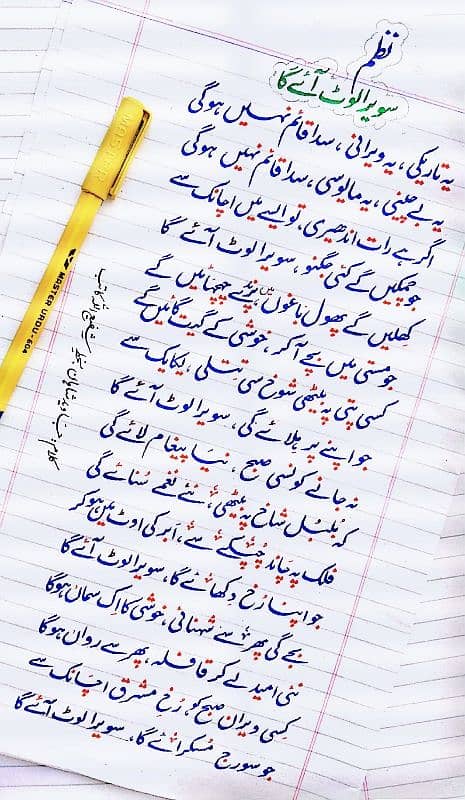 نظم
سویرا لوٹ آئے گا
یہ تاریکی ، یہ ویرانی ، سدا قائم نہیں ہوگی
یہ بے چینی ، یہ مایوسی ، سدا قائم نہیں ہوگی
اگر ہے رات اندھیری ، تو ایسے میں اچانک سے
جو چمکیں گے کئی جگنو ، سویرا لوٹ آئے گا
کھلیں گے پھول باغوں میں ، پرندے چہچہائیں گے
جو مستی میں بچے آکر ، خوشی کے گیت گائیں گے
کسی پتی پہ بیٹھی شوخ سی تتلی ، یکایک سے
جو اپنے پر ہلائے گی ، سویرا لوٹ آئے گا
نہ جانے کونسی صبح ، نیا پیغام لائے گی
کہ بُلبُل شاخ پہ بیٹھی ، نئے نغمے سُنائے گی
فلک پہ چاند چُپکے سے ، اَبر کی اوٹ میں ہوکر
جو اپنا رُخ دِکھائے گا ، سویرا لوٹ آئے گا
بجے گی پھر سے شہنائی ، خوشی کا اِک سماں ہوگا
نئی امید لے کر قافلہ ، پھر سے رواں ہوگا
کِسی ویران صبح کو ، رُخِ مشرق اچانک سے
جو سورج مُسکرائے گا ، سویرا لوٹ آئے گا
MASTER
MASTER URDU-604